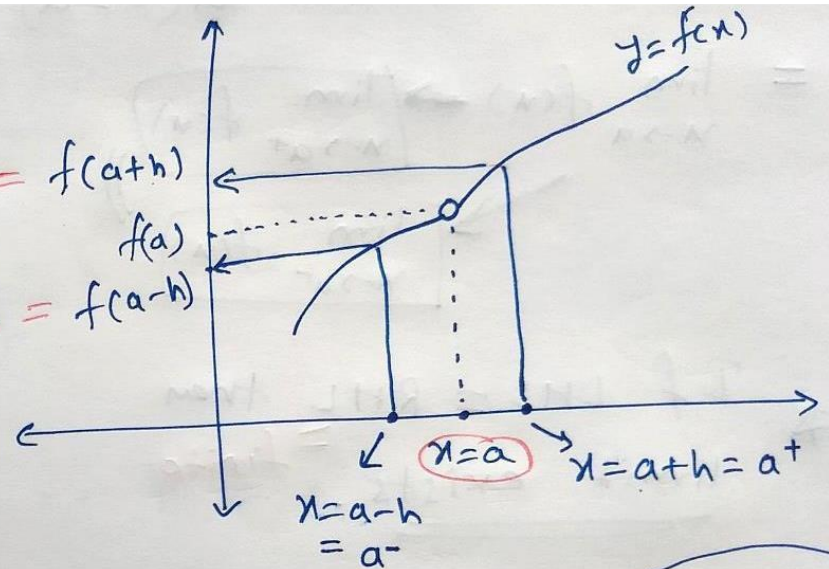 y=f(x)
= f(a+h)
f(a)
= f(a-h)
x=a
x=a+h=a⁺
x=a-h
= a⁻